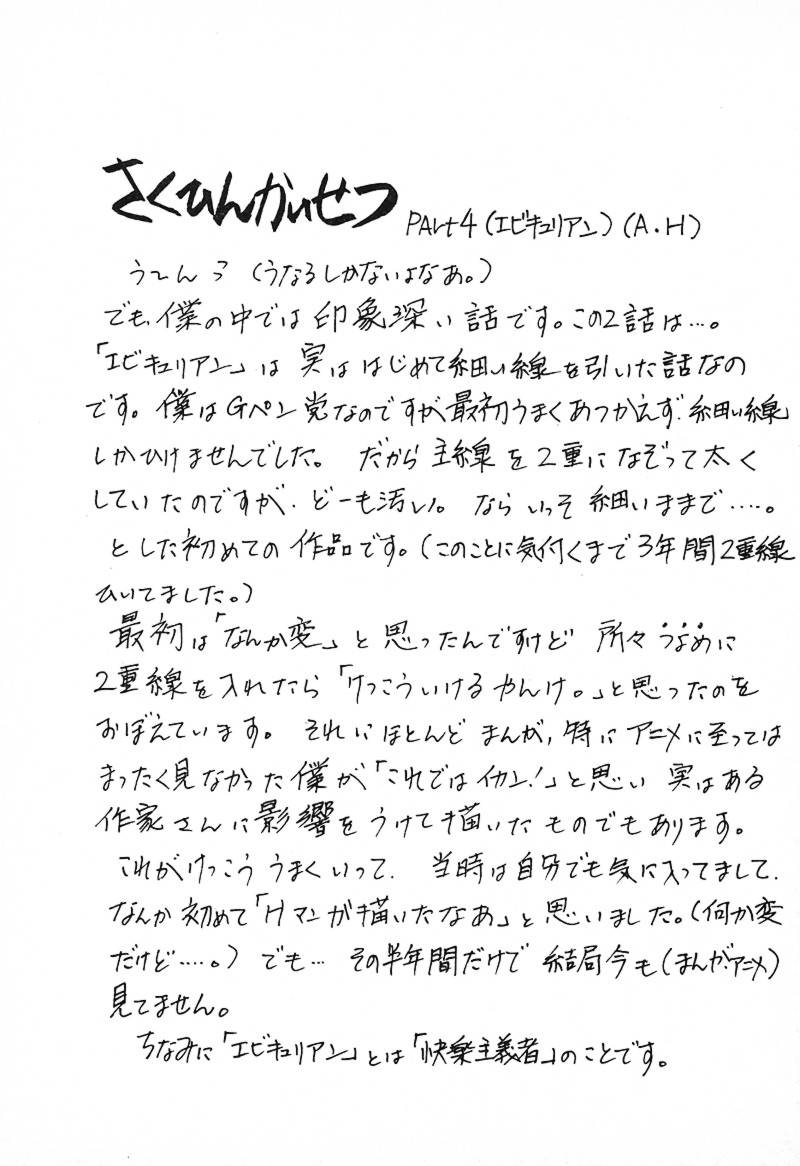 さくひんかいせつ PArt4(エビキュリアン)(A.H)
う～んっ(うなるしかないよなあ。)
でも、僕の中では印象深い話です。この2話は…。
「エビキュリアン」は実ははじめて細い線を引いた話なの
です。僕はGペン党なのですが最初うまくあつかえず、細い線
しかひけませんでした。だから主線を2重になぞって太く
していたのですが、どーも汚い。ならいっそ細いままで‥‥。
とした初めての作品です。(このことに気付くまで3年間2重線
ひいてました。)
最初は「なんか変」と思ったんですけど所々うなめに
2重線を入れたら「けっこういけるやんけ。」と思ったのを
おぼえています。それにほとんどまんが,特にアニメに至っては
まったく見なかった僕が「これではイカン!」と思い実はある
作家さんに影響をうけて描いたものでもあります。
これがけっこううまくいって、当時は自分でも気に入ってまして、
なんか初めて「Hマンが描いたなあ」と思いました。(何か変
だけど‥‥。)でも…その半年間だけで結局今も(まんが、アニメ)
見てません。
ちなみに「エビキュリアン」とは「快楽主義者」のことです。